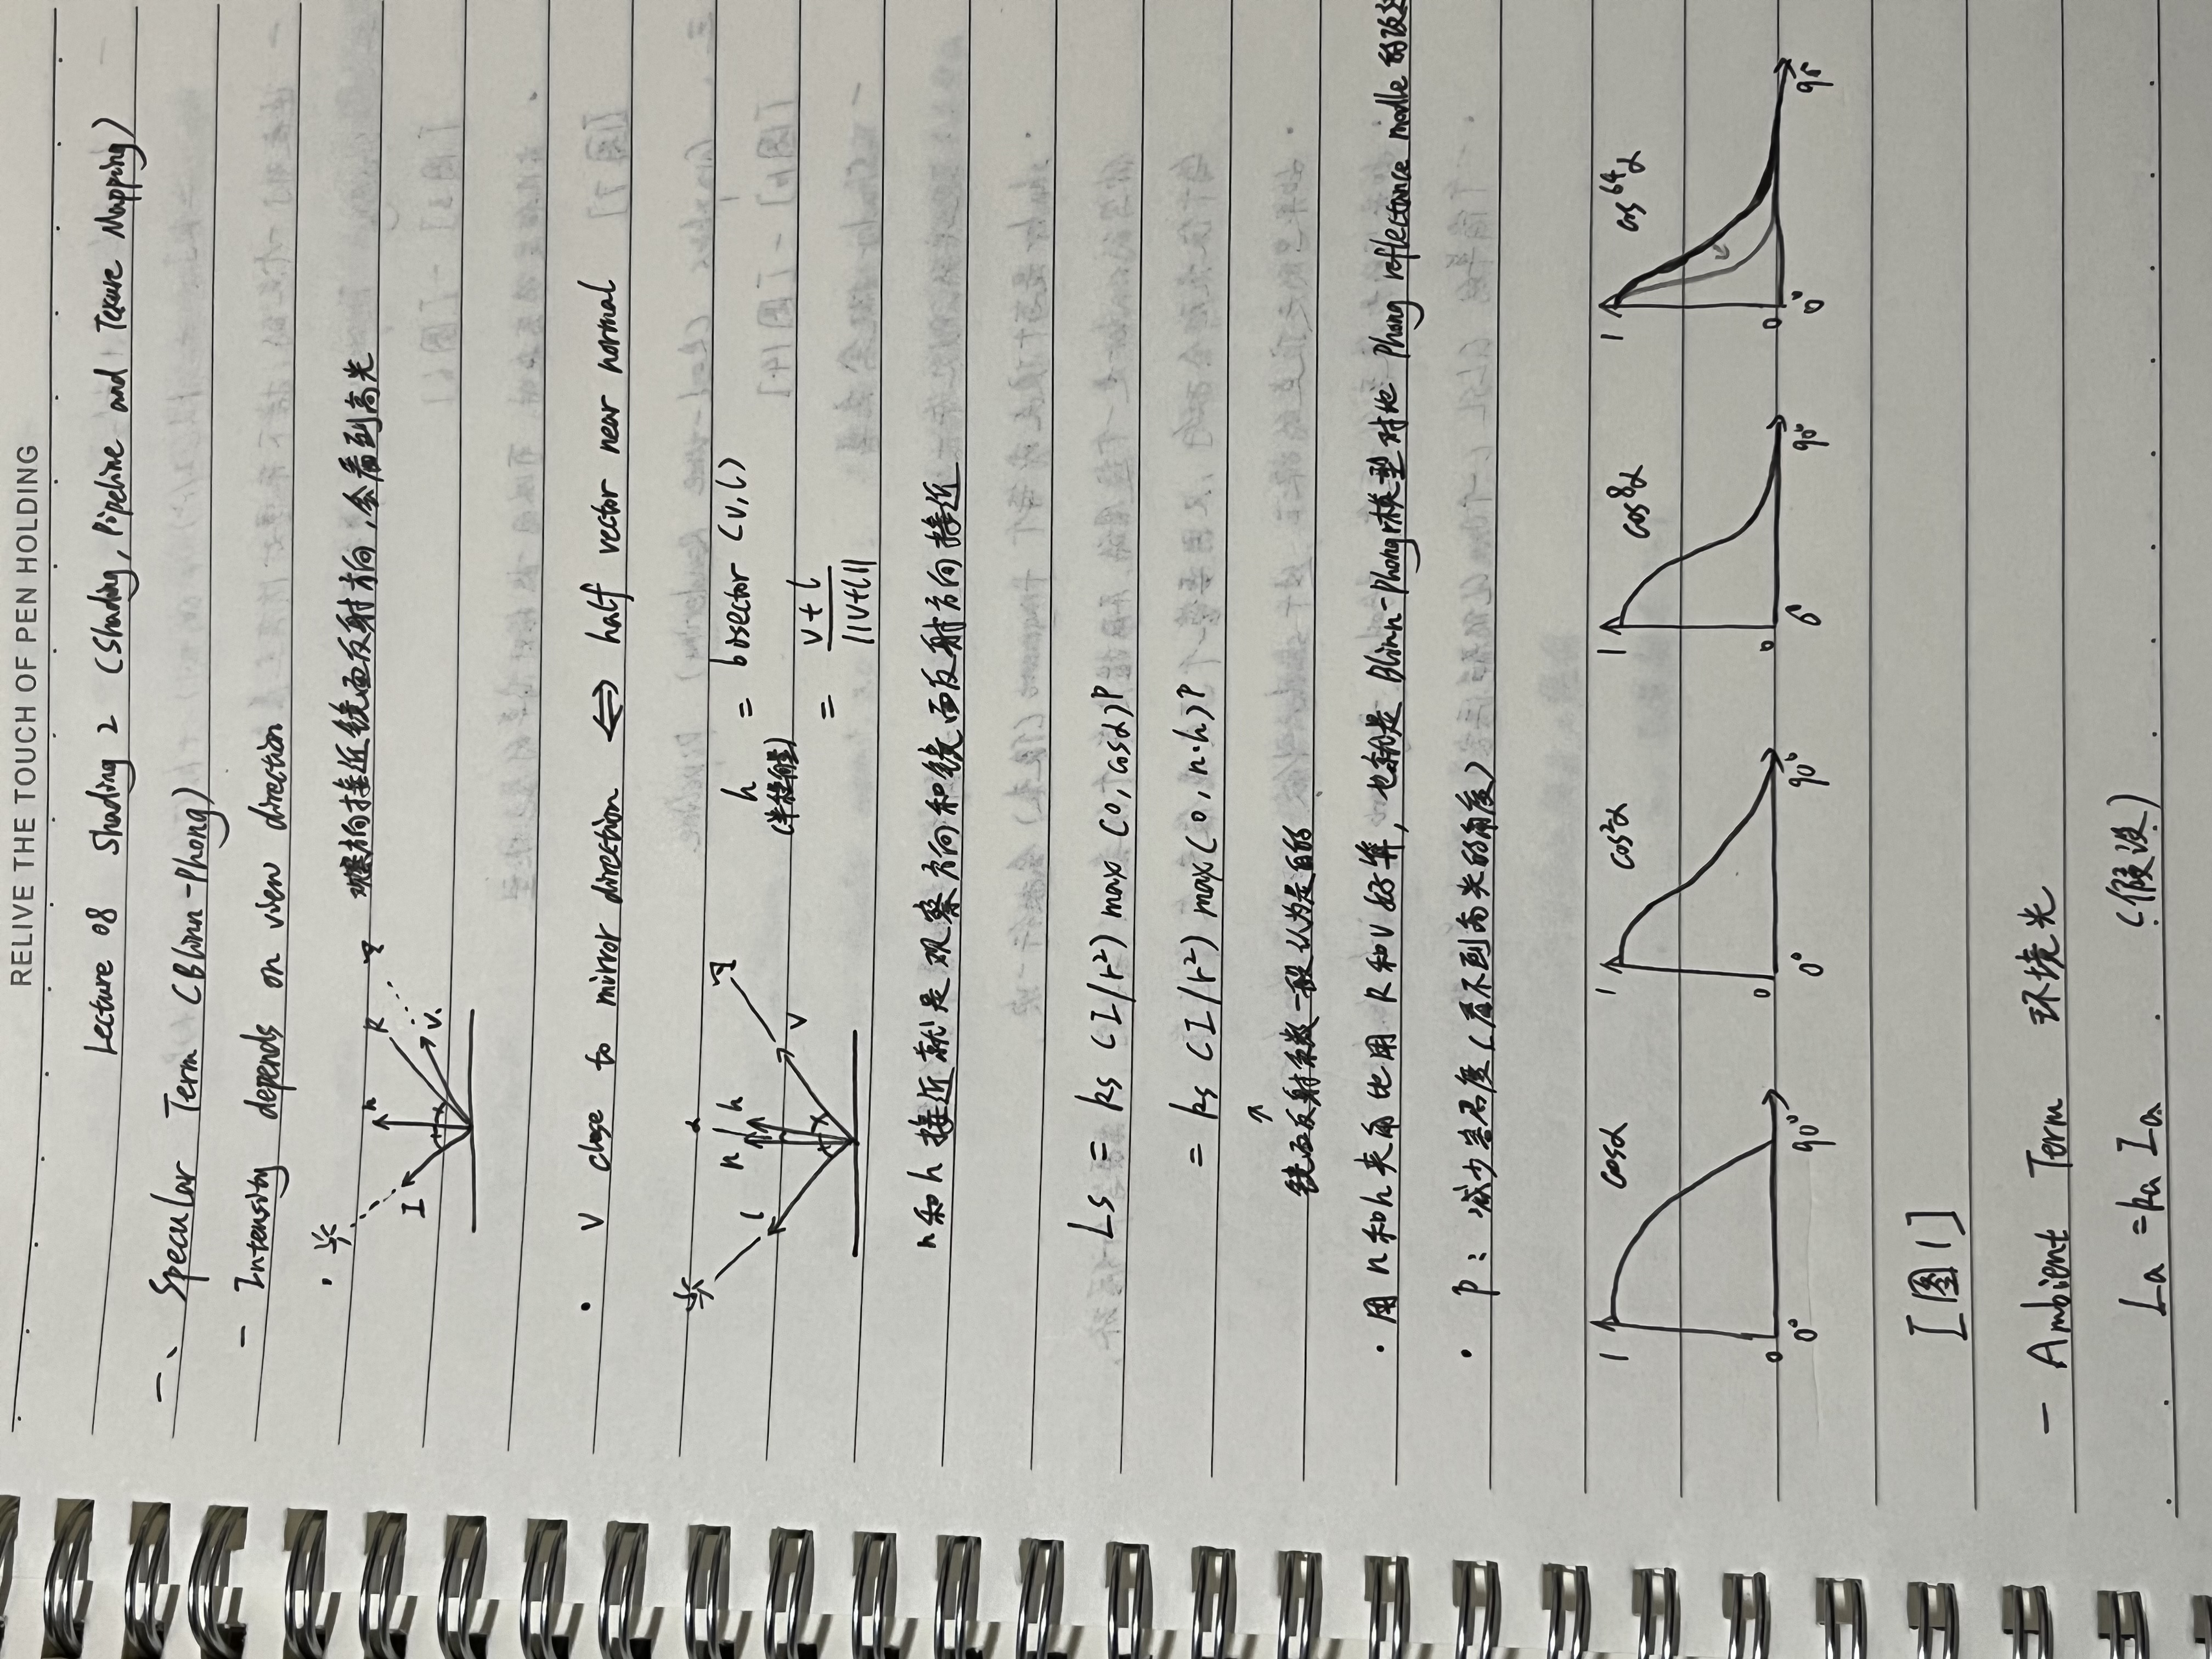 RELIVE THE TOUCH OF PEN HOLDING
Lecture 08 Shading 2 (Shading, Pipeline and Texture Mapping)
一、Specular Term (Blinn-Phong)
- Intensity depends on view direction
· 观察方向接近镜面反射方向,会看到高光
I n R V
· V close to mirror direction ⇔ half vector near normal
h = bisector (v, l)
(半程向量)
= v + l / ||v+l||
l n α h v
n和h接近就是观察方向和镜面反射方向接近
Ls = ks (I/r²) max (0, cosα)^p
= ks (I/r²) max (0, n·h)^p
↑
镜面反射系数一般认为是白的
· 用n和h夹角比用R和V好算,也就是Blinn-Phong模型对比Phong reflectance modle的改
· P:减少容忍度(看不到高光的角度)
cosα cos²α cos⁸α cos⁶⁴α
1 1 1 1
0 0 0 0
0° 90° 0° 90° 0 90° 0° 90°
[图1]
- Ambient Term 环境光
La = ka Ia (假设)